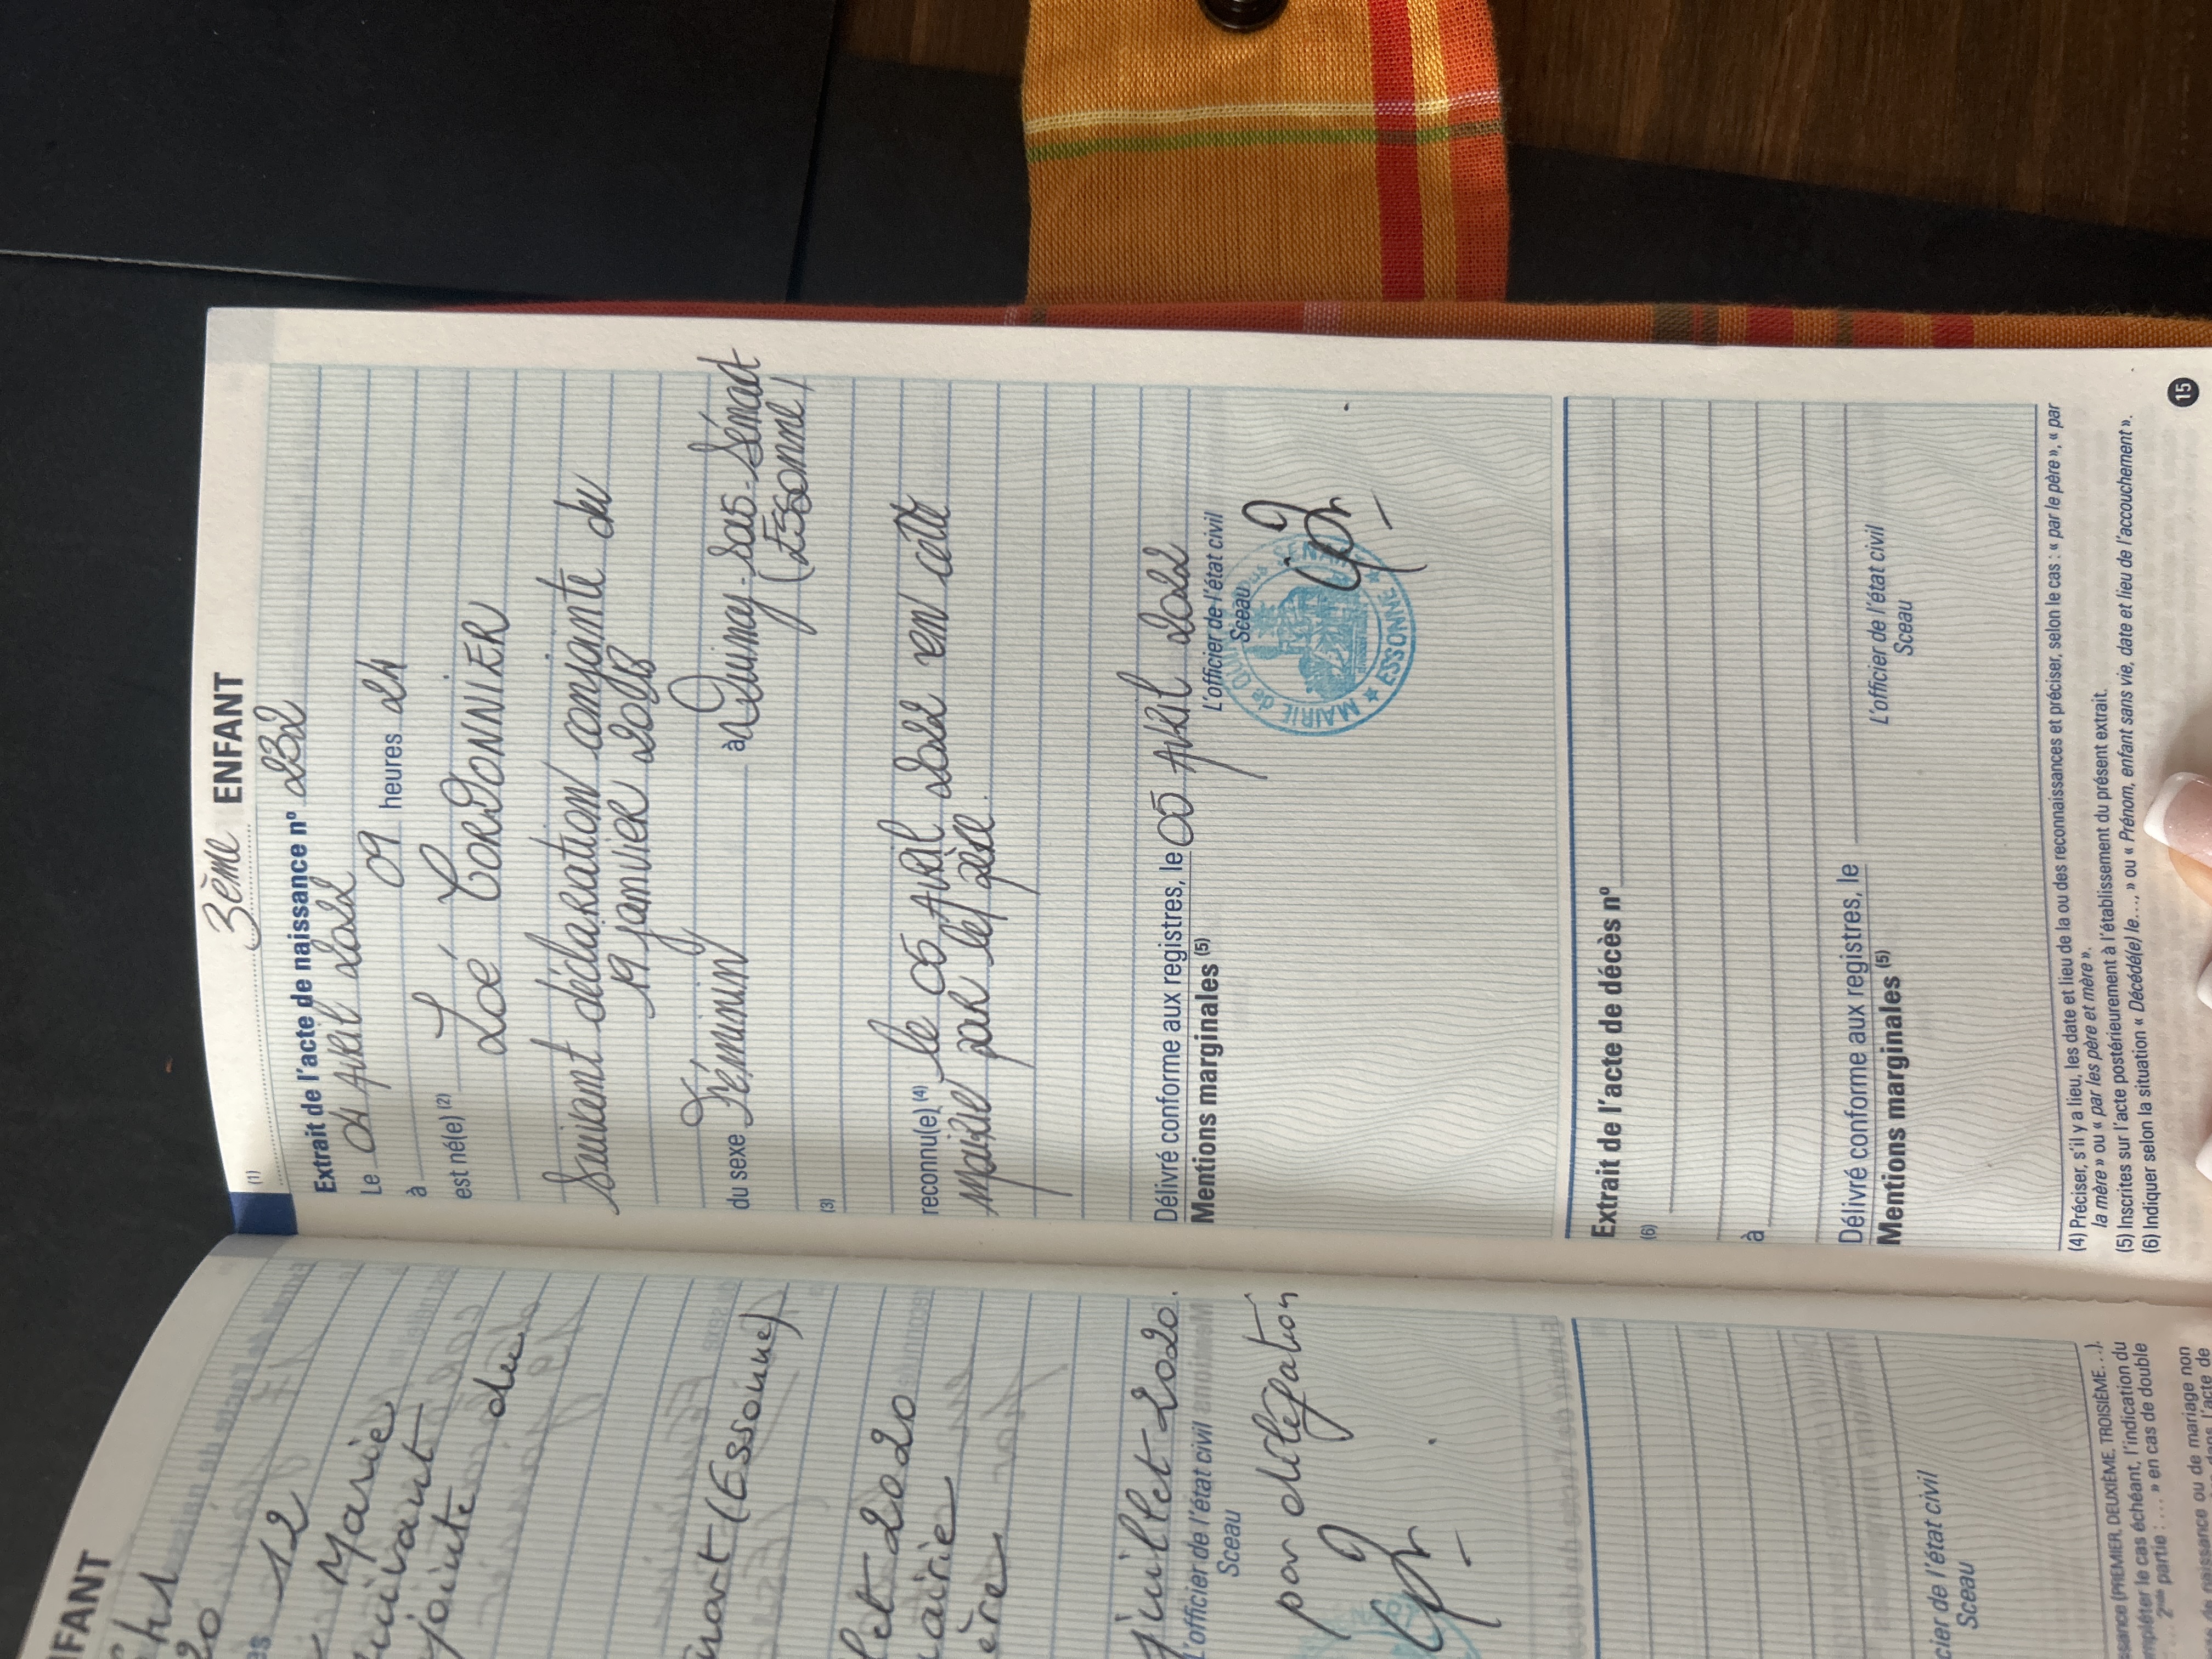 IFANT
12
Marie
suivant
jointe du
nart (Essonne)
let 2020
mairie
ère
juillet 2020.
L'officier de l'état civil
Sceau
par délégation
cier de l'état civil
Sceau
ssance (PREMIER, DEUXIÈME, TROISIÈME...).
mpléter le cas échéant, l'indication du
2nde partie : .... » en cas de double
ou de mariage non
3ème ENFANT
(1)
Extrait de l'acte de naissance n° 232
Le 01 Avril 2022
à 09 heures 24
est né(e) (2)
Loé CORDONNIER
suivant déclaration conjointe du
19 janvier 2018
du sexe Féminin à Quincy-sous-Sénart
(Essonne)
(3)
reconnu(e) (4) le 05 Avril 2022 en cette
mairie par le père.
Délivré conforme aux registres, le 05 Avril 2022
Mentions marginales (5)
L'officier de l'état civil
Sceau
MAIRIE de QUINCY sous SENART
★ ESSONNE ★
Extrait de l'acte de décès n°
(6)
à
Délivré conforme aux registres, le
Mentions marginales (5)
L'officier de l'état civil
Sceau
(4) Préciser, s'il y a lieu, les date et lieu de la ou des reconnaissances et préciser, selon le cas : « par le père », « par
la mère » ou « par les père et mère ».
(5) Inscrites sur l'acte postérieurement à l'établissement du présent extrait.
(6) Indiquer selon la situation « Décédé(e) le..., » ou « Prénom, enfant sans vie, date et lieu de l'accouchement ».
15